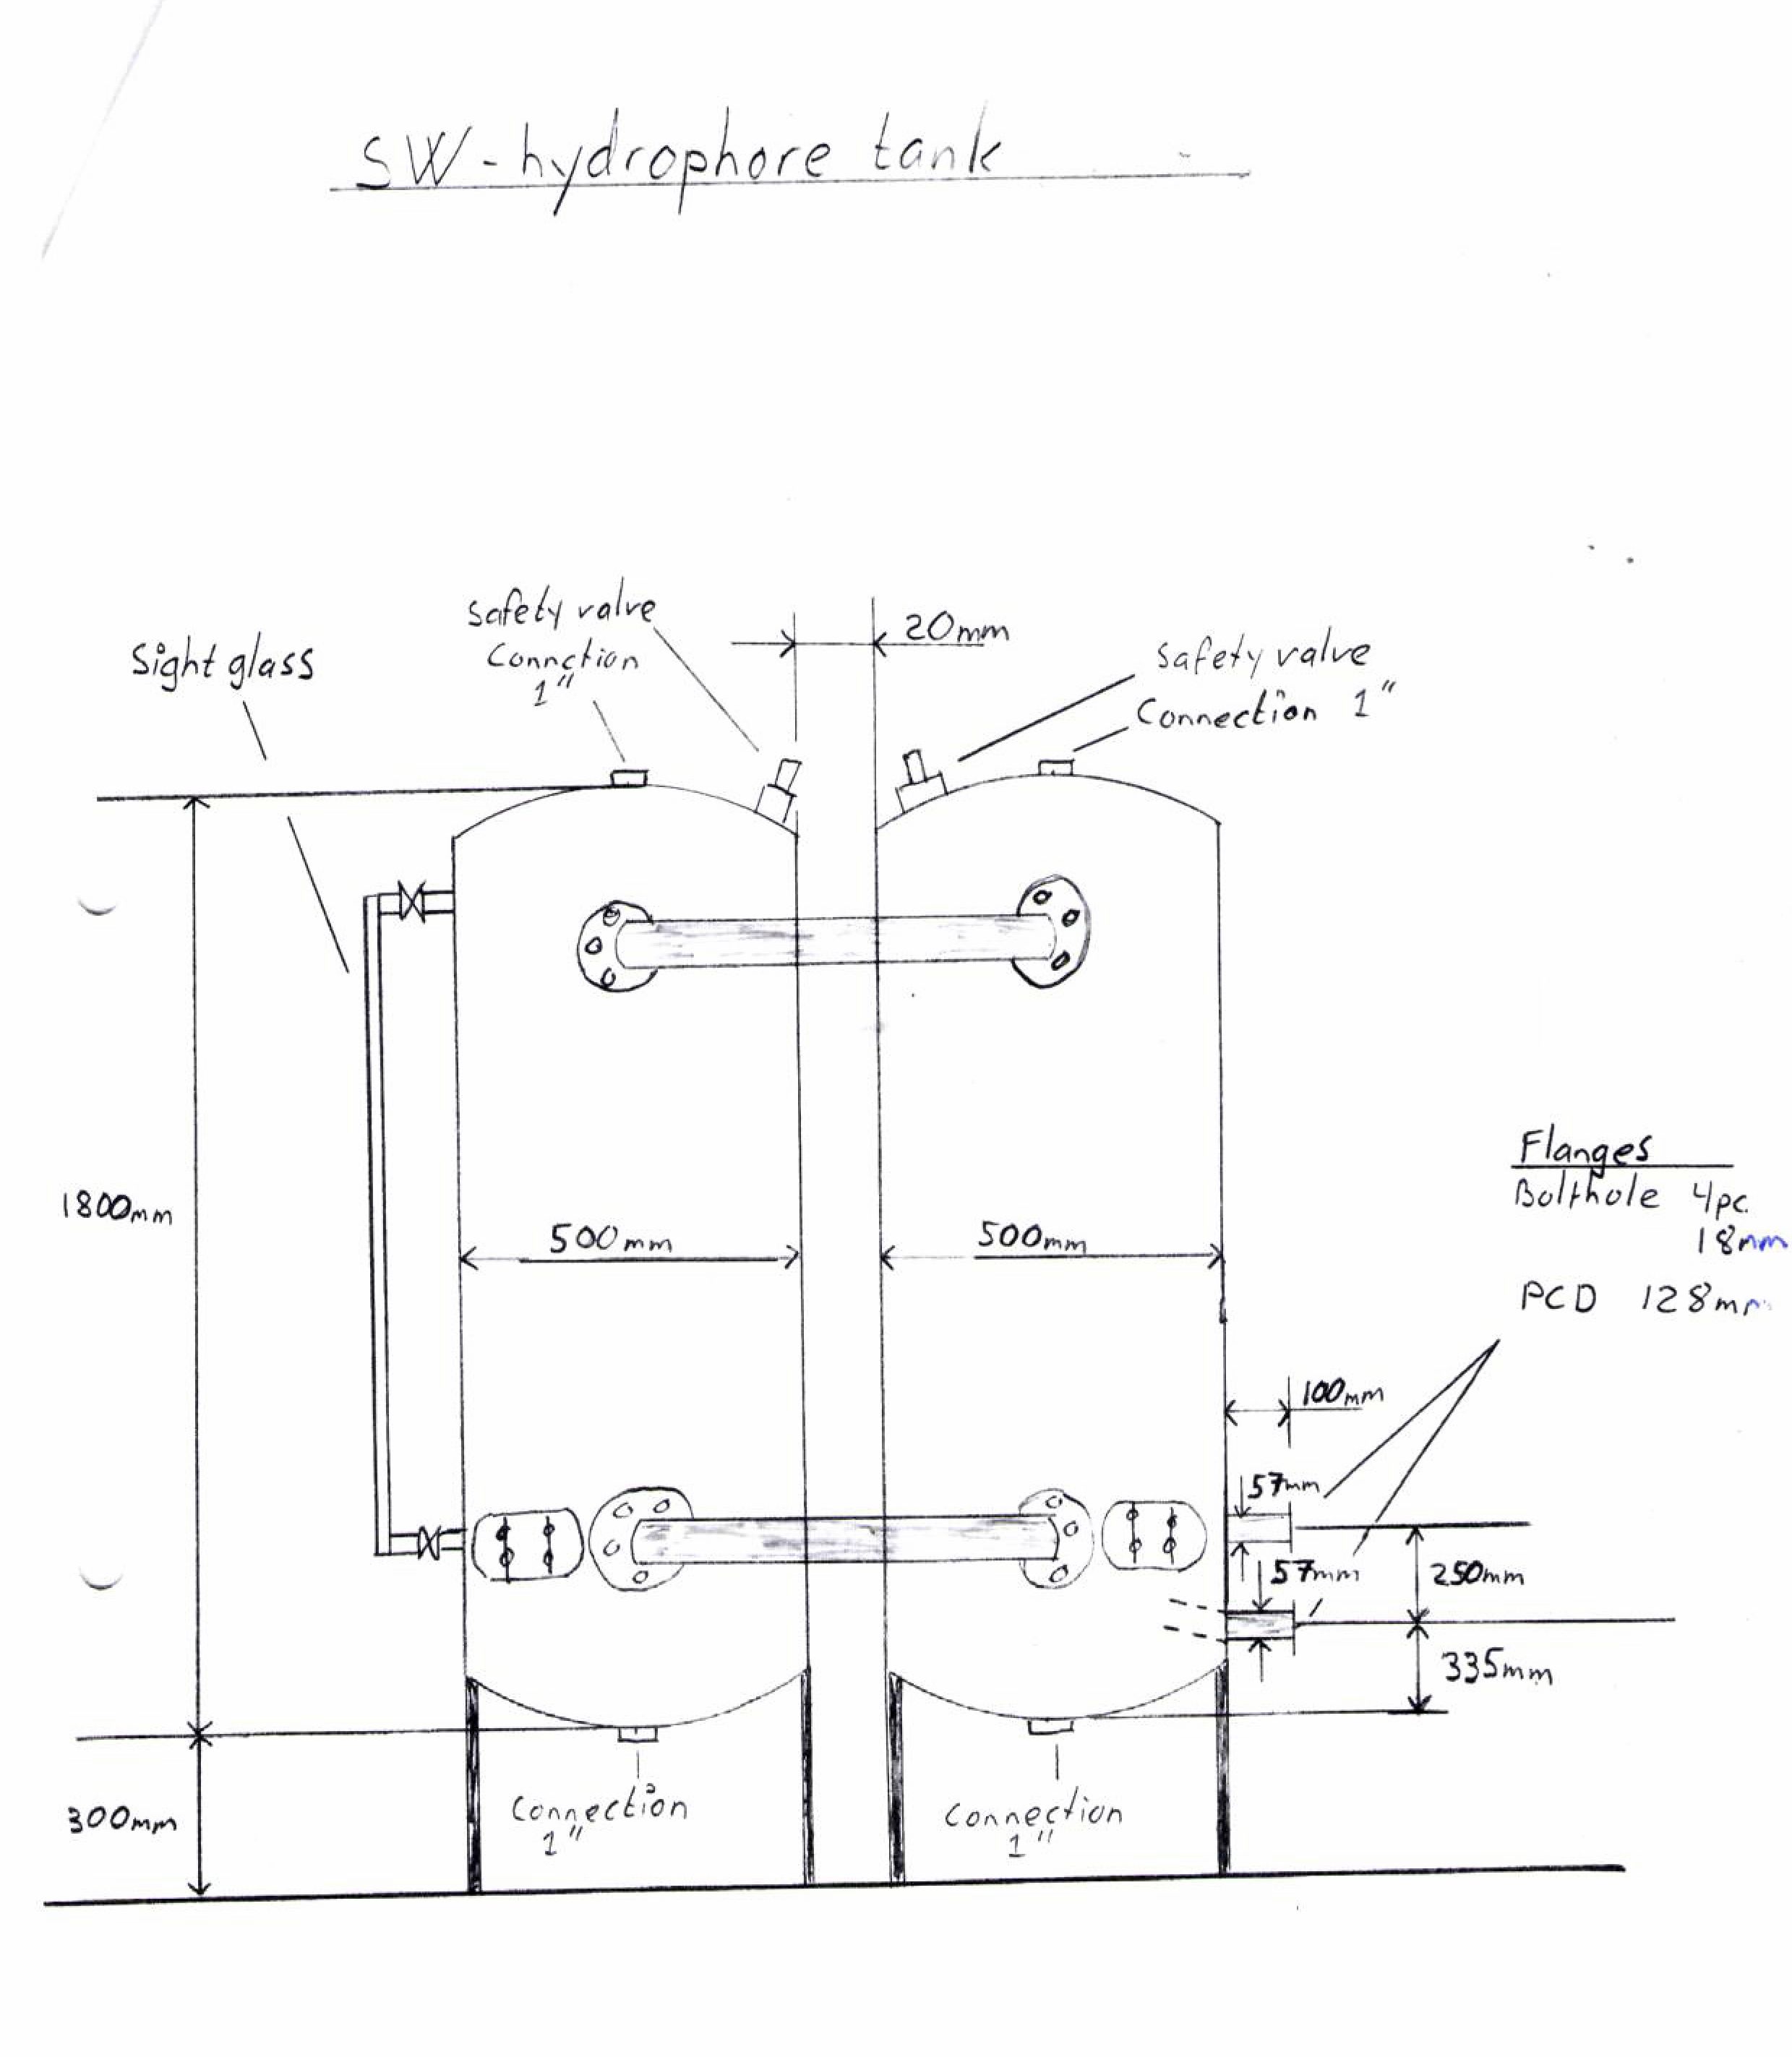 SW-hydrophore tank
Safety valve
Connction
1"
20mm
Sight glass
Safety valve
Connection 1"
1800mm
500mm
500mm
Flanges
Bolthole 4pc.
18mm
PCD 128mm
100mm
57mm
57mm
250mm
335mm
300mm
Connection
1"
Connection
1"